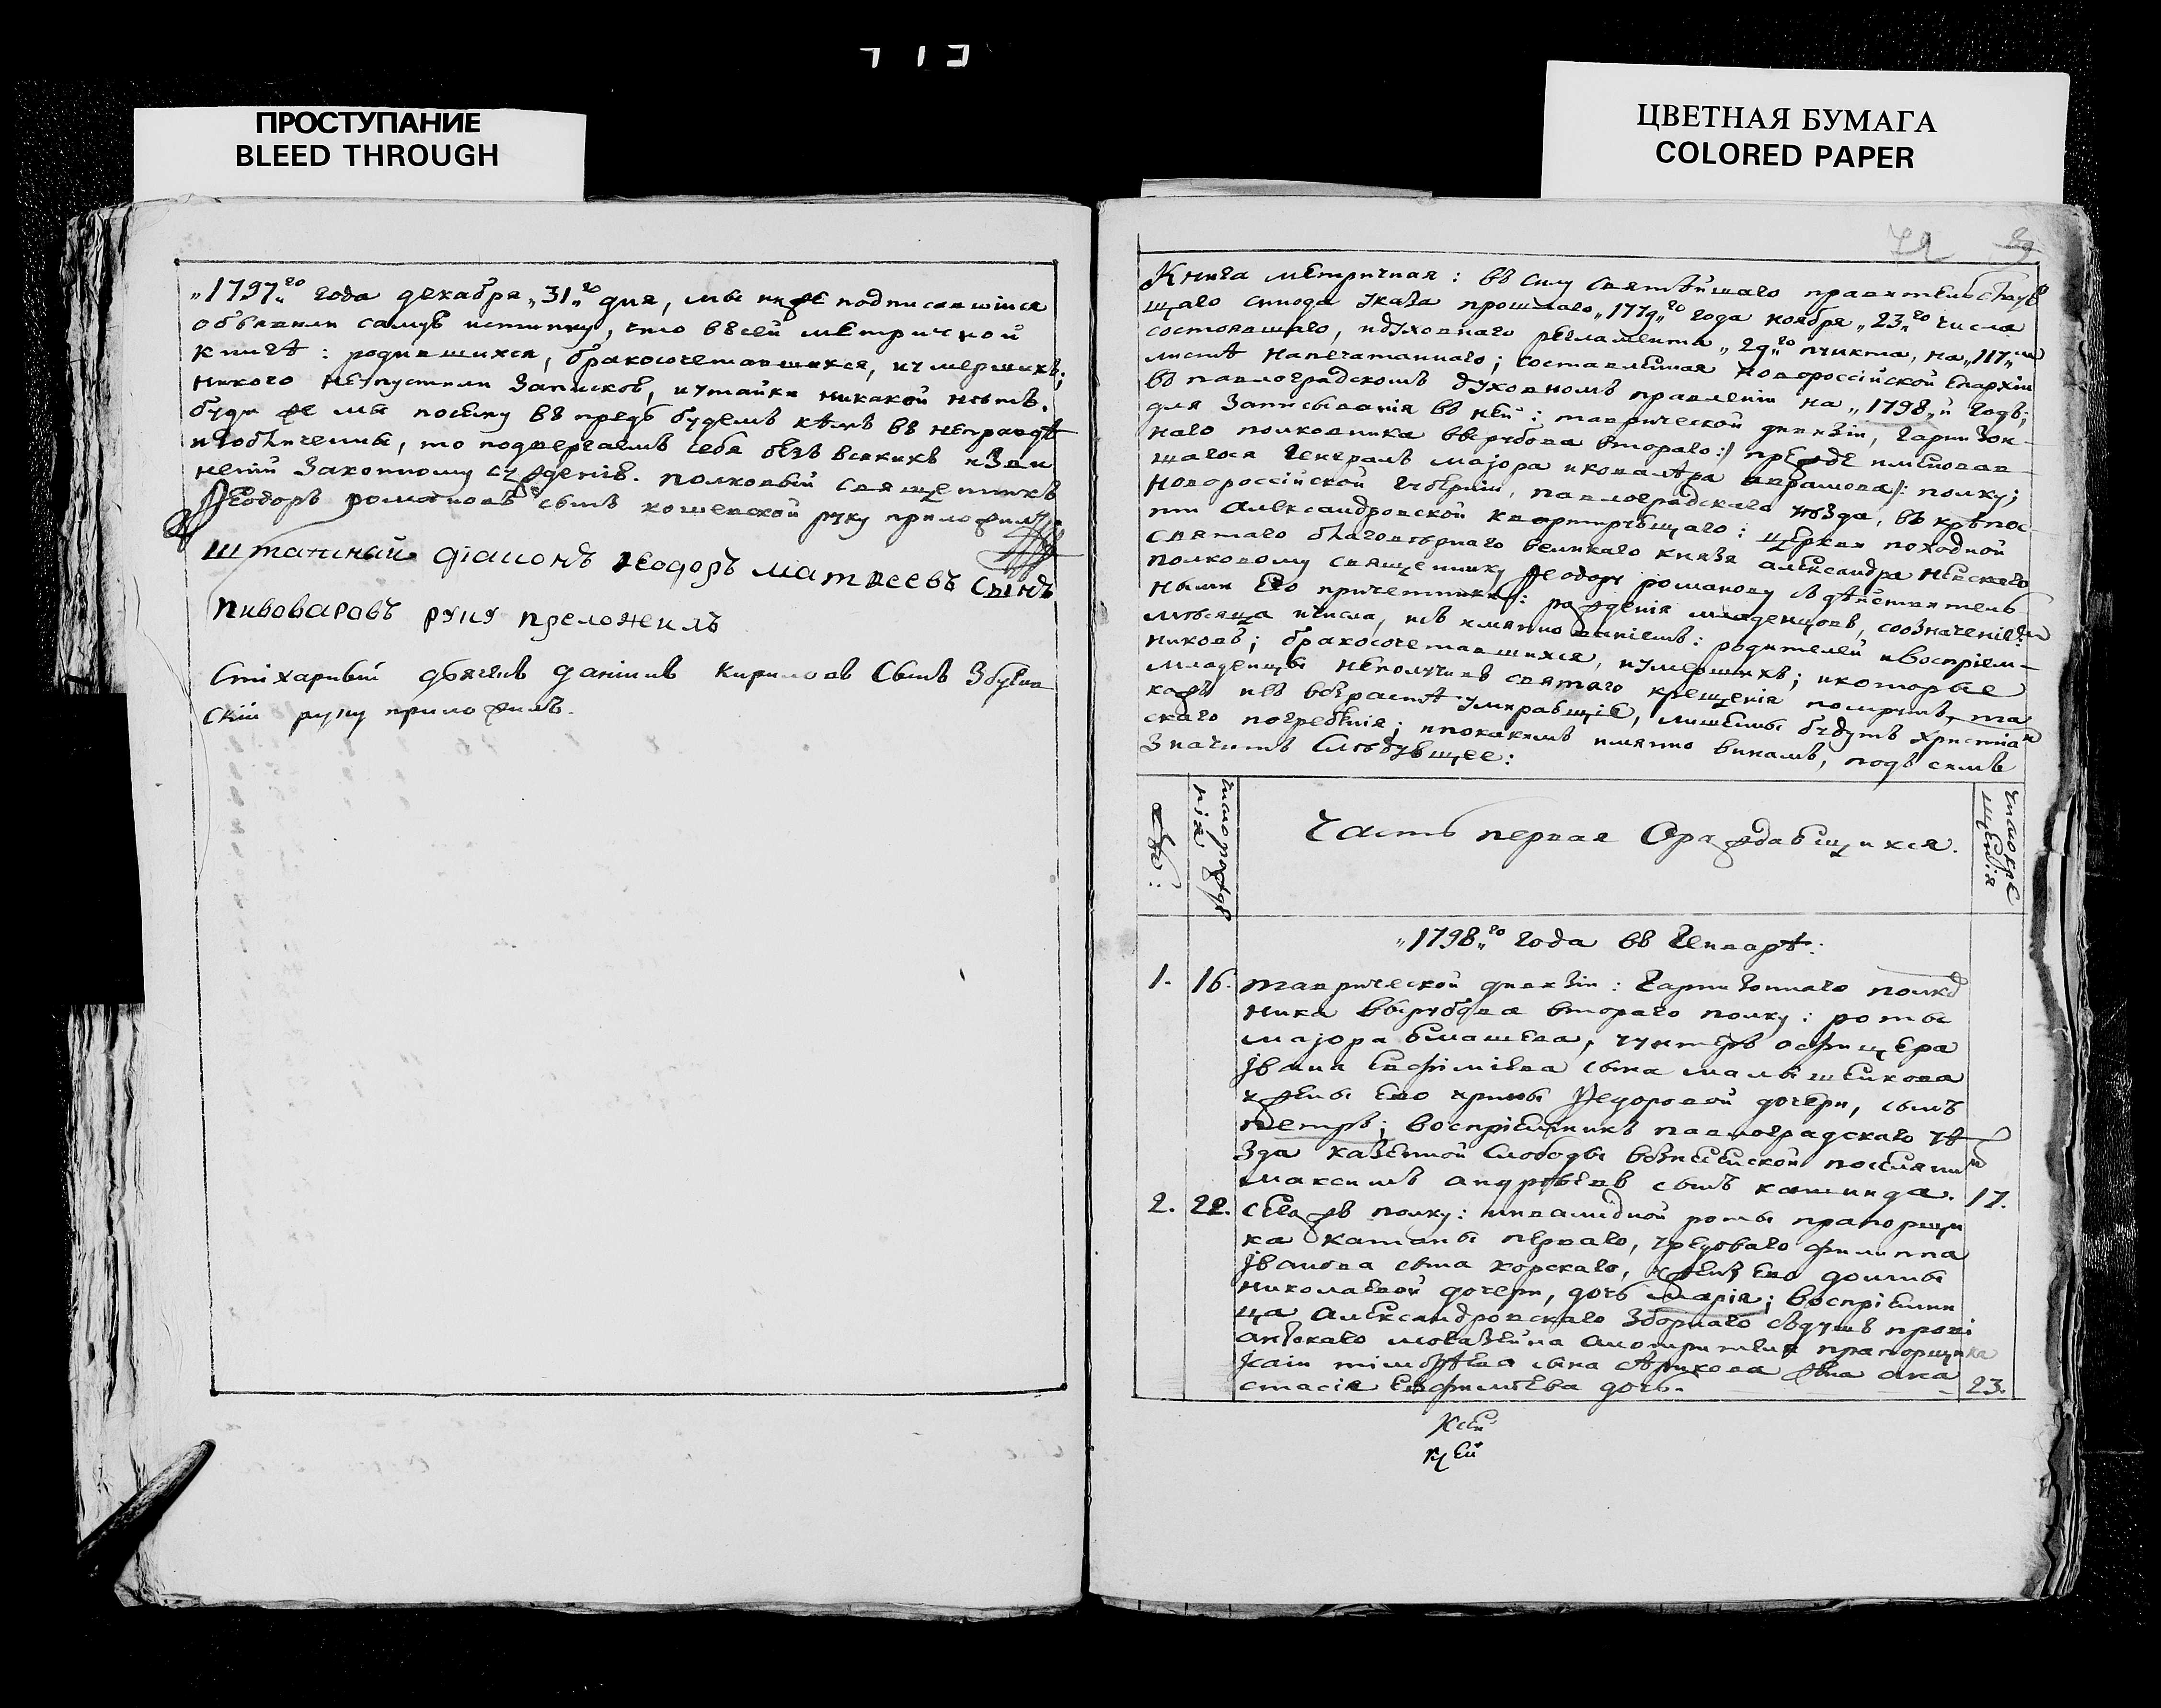 ПРОСТУПАНИЕ
BLEED THROUGH
ЦВЕТНАЯ БУМАГА
COLORED PAPER
„1797„го года декабря „31„го дня, мы ниже подписавшіися
объявили самую истинну, что въ сей метричной
книгѣ: родившихся, бракосочетавшихся, и умершихъ;
никого не пустили записков, и утайки никакой нѣтъ.
буди же мы посему въ предь будемъ кѣмъ въ неправдѣ
изобличенны, то подвергаемъ себя безъ всякихъ изви
неній законному сужденію. полковый священникъ
Ѳеодоръ романовъ сынъ кошевской руку приложилъ
штатный діаконъ ѳеодоръ матвеевъ сынъ
пивоваровъ руку преложилъ
Стихарный дьячекъ даніилъ кириловъ сынъ Збуев
скій руку приложилъ.
72
Книга метричная: въ силу святѣйшаго правительствую
щаго синода указа прошлаго „1779„го года ноября „23„го числа
состоявшаго, и духовнаго регламента „29„го пункта, на „117„м
листѣ напечатаннаго; составленная новороссійской епархіи
въ павлоградскомъ духовномъ правленіи на „1798„й годъ;
для записыванія въ ней: таврической дивизіи, гарнизон-
наго полковника вырубова втораго:/ прежде именовав
шагося генералъ маіора и ковалѣра аврамова/: полку;
новороссійской губерніи, павлоградскаго уѣзда, въ крѣпос
ти александровской квартирующаго: церкви походной
святаго благовѣрнаго великаго князя александра невскаго
полковому священнику Ѳеодору романову съ дѣйствитель
ными его причетники: рожденія младенцовъ, соозначеніемъ
мѣсяца и числа, и съ имянно ваніемъ: родителей и воспріем-
никовъ; бракосочетавшихся, и умершихъ; и которые
младенцы неполучивъ святаго крещенія помрутъ, та
кожъ и въ возрастѣ умиравшіе, лишенны будутъ христіан
скаго погребенія; и покакимъ имянно винамъ, подъ симъ
значитъ Слѣдующее:
число рожде
нія
Часть первая О раждавшихся.
число кре
щенія
„1798„го года въ Генварѣ:
1. 16. таврической дивизіи: гарнизоннаго полков
ника вырубова втораго полку: роты
маіора блашева, унтеръ офицера
Івана Евфиміева сына малышенкова
и жены ево ирины Ѳедоровой дочери, сынъ
петръ; воспріемникъ павлоградскаго уѣ
зда казенной слободы вознесенской поселянин
максимъ андрѣевъ сынъ кашинда. 17.
2. 22. сегожъ полку: инвалидной роты прапорщи
ка катаны перваго, рядоваго филиппа
Іванова сына корскаго, и жены ево домны
николаевой дочери, дочь марія; воспріемни
ца Александровскаго зборнаго съ душъ прові
антскаго могазейна смотрителя прапорщика
Ісаіи тимоѳѣева сына жена ана
стасія Евфимьева дочь. 23.